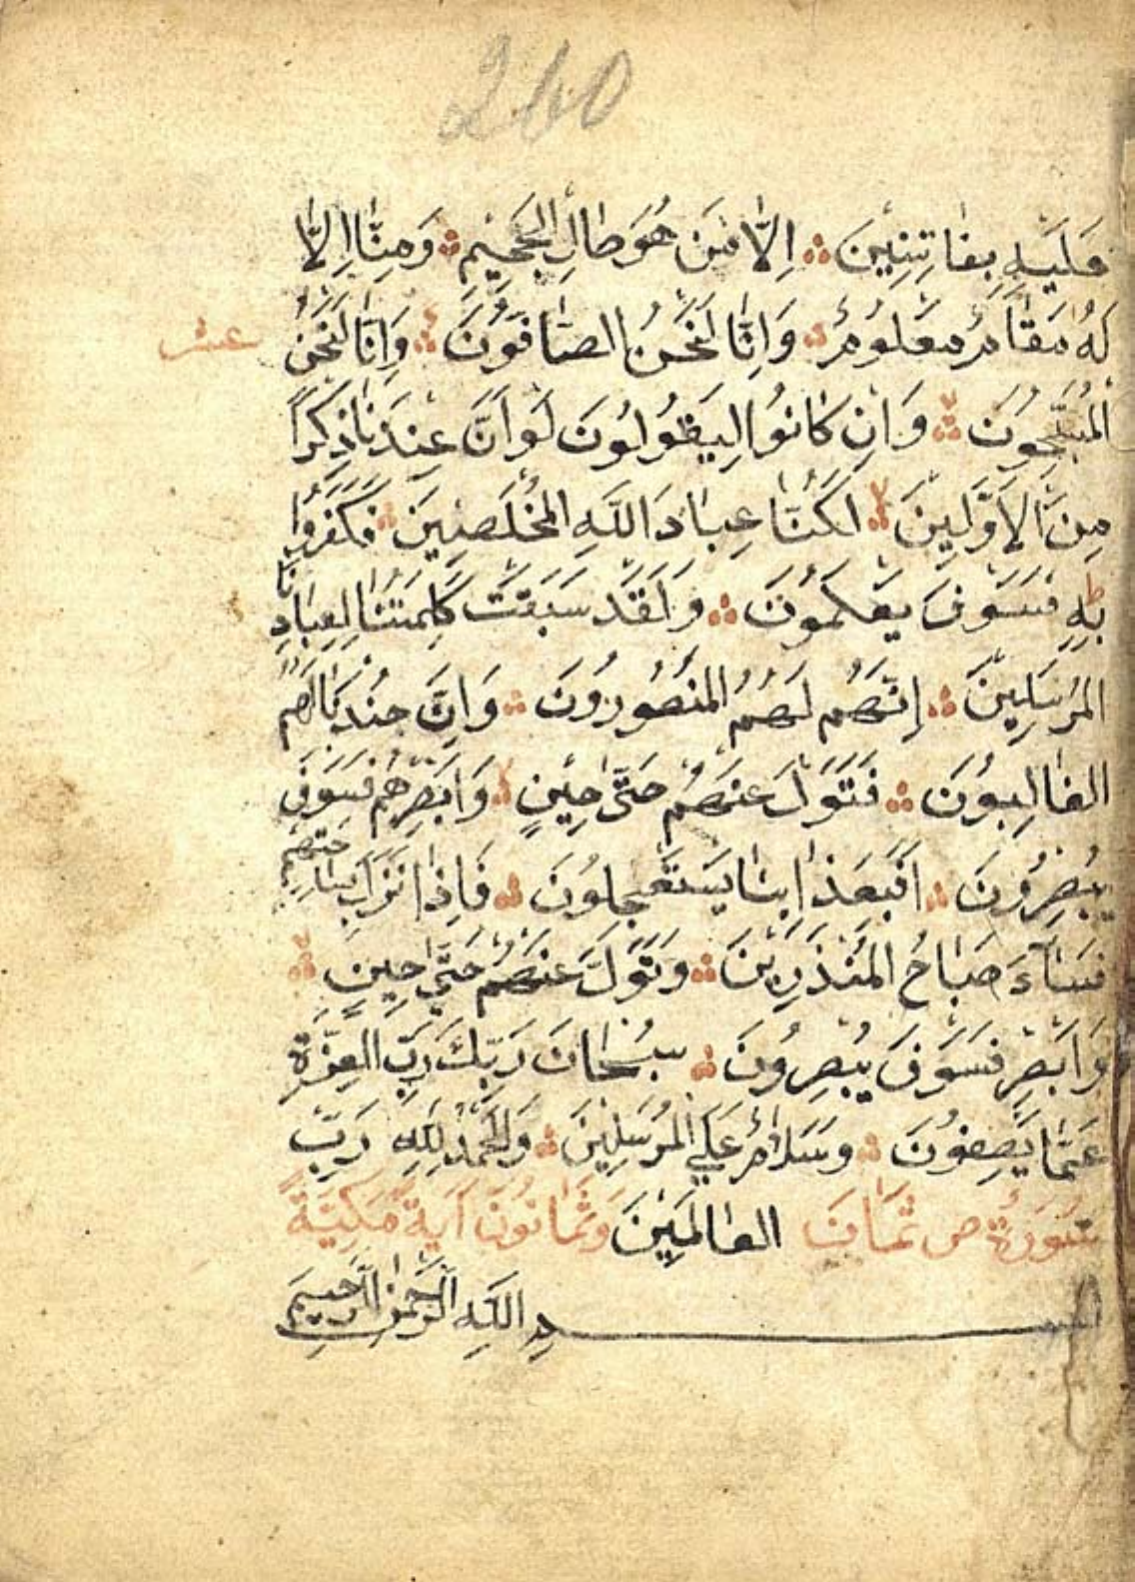 260
عَلَيْهِ بِفَاتِنِينَ اِلَّا مَنْ هُوَ صَالِ الْجَحِيمِ وَمِنَّا اِلَّا
لَهُ مَقَامٌ مَعْلُومٌ وَاِنَّا لَنَحْنُ الصَّافُّونَ وَاِنَّا لَنَحْنُ
عشر
الْمُسَبِّحُونَ وَاِنْ كَانُوا لَيَقُولُونَ لَوْ اَنَّ عِنْدَنَا ذِكْرًا
مِنَ الْاَوَّلِينَ لَكُنَّا عِبَادَ اللَّهِ الْمُخْلَصِينَ فَكَفَرُوا
بِهِ فَسَوْفَ يَعْلَمُونَ وَلَقَدْ سَبَقَتْ كَلِمَتُنَا لِعِبَادِنَا
الْمُرْسَلِينَ اِنَّهُمْ لَهُمُ الْمَنْصُورُونَ وَاِنَّ جُنْدَنَا لَهُمُ
الْغَالِبُونَ فَتَوَلَّ عَنْهُمْ حَتَّى حِينٍ وَاَبْصِرْهُمْ فَسَوْفَ
يُبْصِرُونَ اَفَبِعَذَابِنَا يَسْتَعْجِلُونَ فَاِذَا نَزَلَ بِسَاحَتِهِمْ
فَسَاءَ صَبَاحُ الْمُنْذَرِينَ وَتَوَلَّ عَنْهُمْ حَتَّى حِينٍ
وَاَبْصِرْ فَسَوْفَ يُبْصِرُونَ سُبْحَانَ رَبِّكَ رَبِّ الْعِزَّةِ
عَمَّا يَصِفُونَ وَسَلَامٌ عَلَى الْمُرْسَلِينَ وَالْحَمْدُ لِلَّهِ رَبِّ
سُورَةُ ص ثَمَانَ الْعَالَمِينَ وَثَمَانُونَ آيَةً مَكِّيَّةً
بسم اللَّهِ الرَّحْمَنِ الرَّحِيمِ